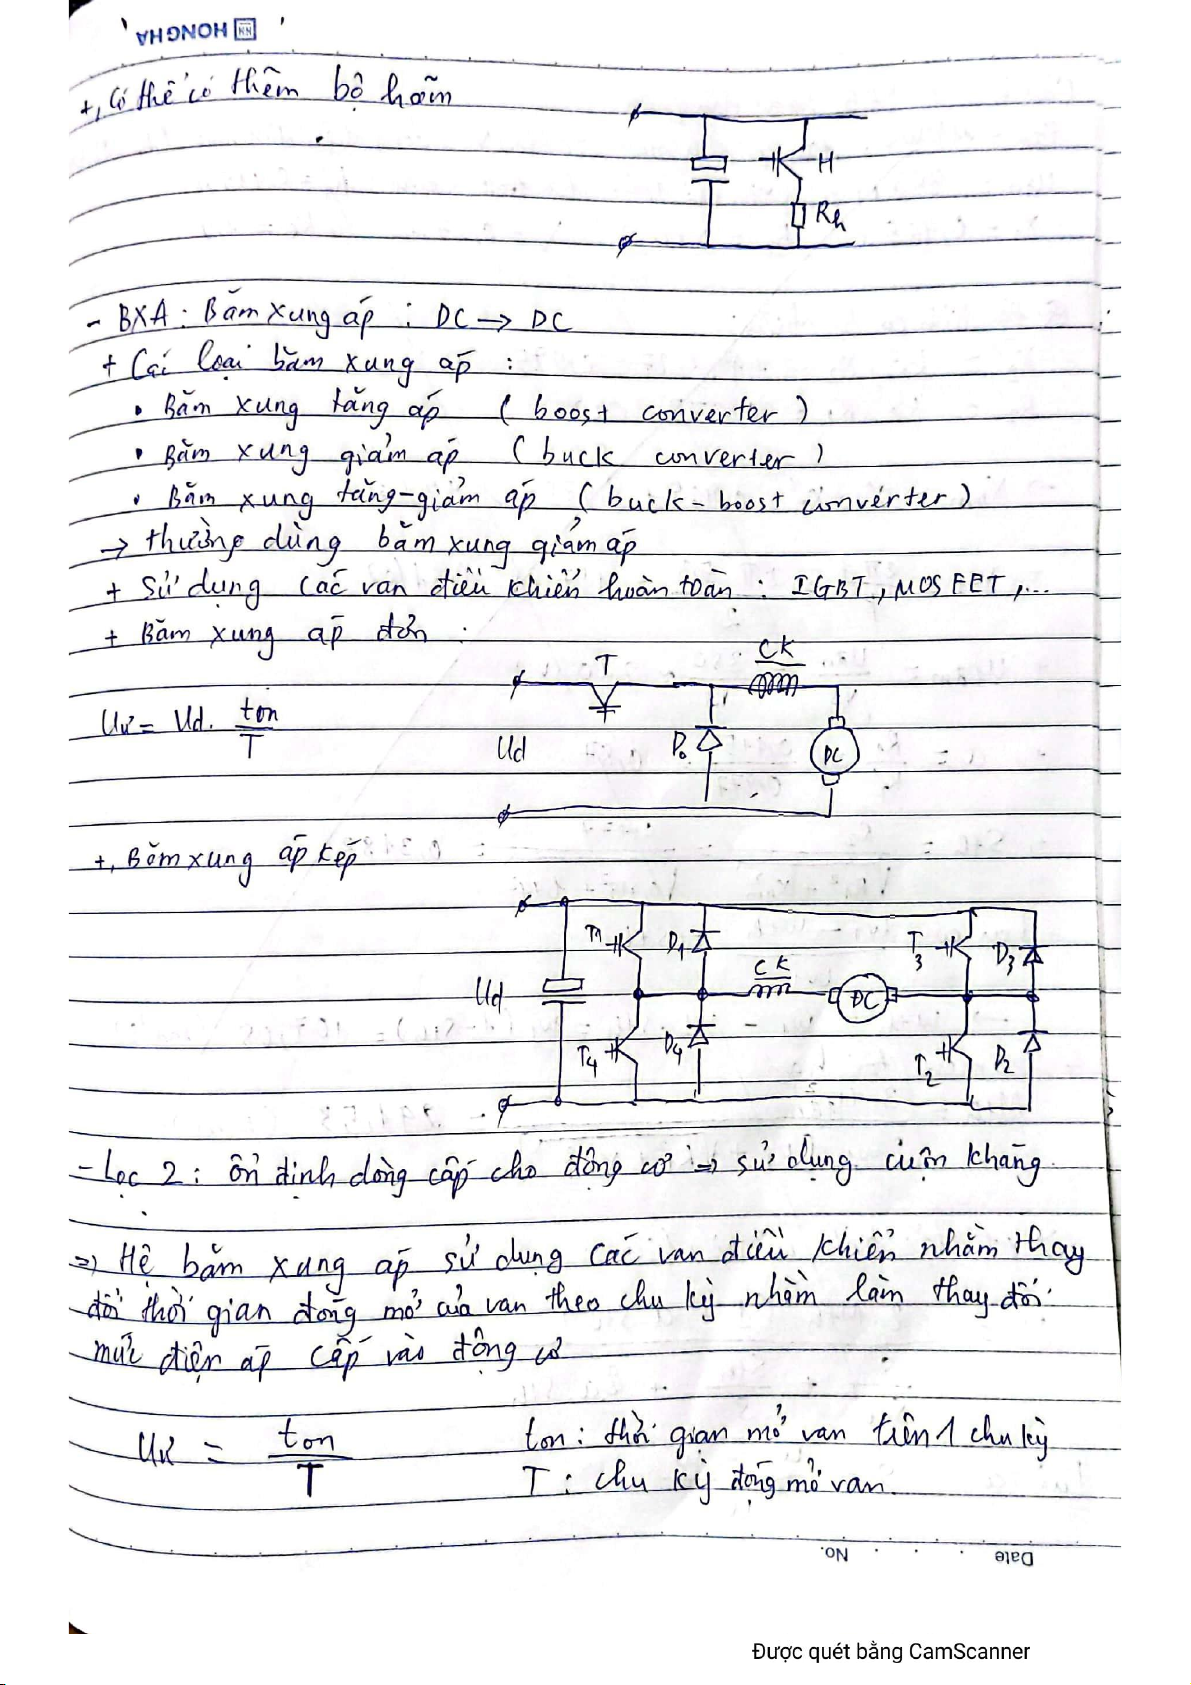 HONGHA
+, Có thể có thêm bộ hãm
H
Rh
- BXA : Băm xung áp : DC → DC
+ Các loại băm xung áp :
• Băm xung tăng áp ( boost converter )
• Băm xung giảm áp ( buck converter )
• Băm xung tăng-giảm áp ( buck - boost converter )
→ thường dùng băm xung giảm áp
+ Sử dụng các van điều khiển hoàn toàn : IGBT, MOSFET, ...
+ Băm xung áp đơn :
T
CK
Uư = Ud. ton/T
Ud
Do
DC
+, Băm xung áp kép
T1
D1
T3
D3
CK
Ud
DC
T4
D4
T2
D2
- Lọc 2 : ổn định dòng cấp cho động cơ → sử dụng cuộn kháng
=> Hệ băm xung áp sử dụng các van điều khiển nhằm thay
đổi thời gian đóng mở của van theo chu kỳ nhằm làm thay đổi
mức điện áp cấp vào động cơ
Uư = ton/T
ton : thời gian mở van trên 1 chu kỳ
T : chu kỳ đóng mở van.
No.
Date
Được quét bằng CamScanner